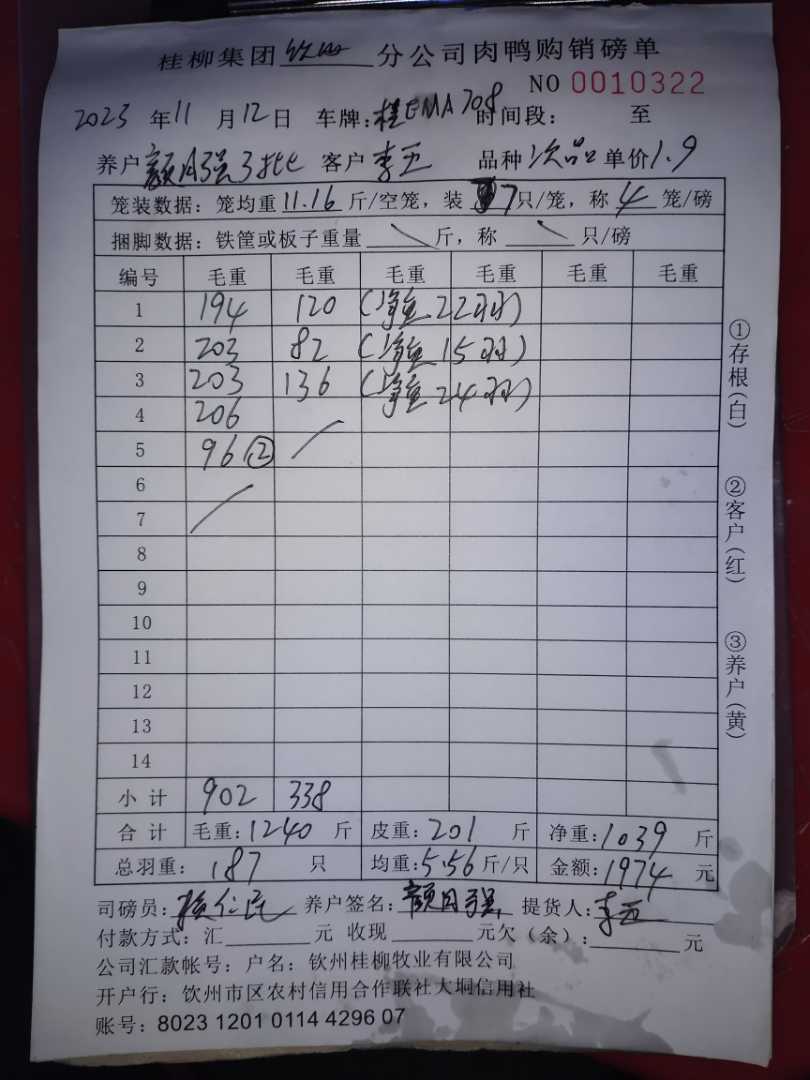 桂柳集团 钦州 分公司肉鸭购销磅单
NO 0010322
2023 年 11 月 12 日 车牌：桂EMA708 时间段： 至
养户 颜月强3批 客户 李五 品种 次品 单价 1.9
笼装数据：笼均重 11.16 斤/空笼，装 7 只/笼，称 4 笼/磅
捆脚数据：铁筐或板子重量 斤，称 只/磅
编号 毛重 毛重 毛重 毛重 毛重 毛重
1 194 120 (净重22羽)
2 203 82 (净重15羽)
3 203 136 (净重24羽)
4 206
5 96②
6
7
8
9
10
11
12
13
14
小计 902 338
合计 毛重：1240 斤 皮重：201 斤 净重：1039 斤
总羽重： 187 只 均重：5.56 斤/只 金额：1974 元
司磅员： 养户签名：颜月强 提货人：李五
付款方式：汇 元 收现 元欠（余）： 元
公司汇款帐号：户名：钦州桂柳牧业有限公司
开户行：钦州市区农村信用合作联社大垌信用社
账号：8023 1201 0114 4296 07
①存根(白)
②客户(红)
③养户(黄)